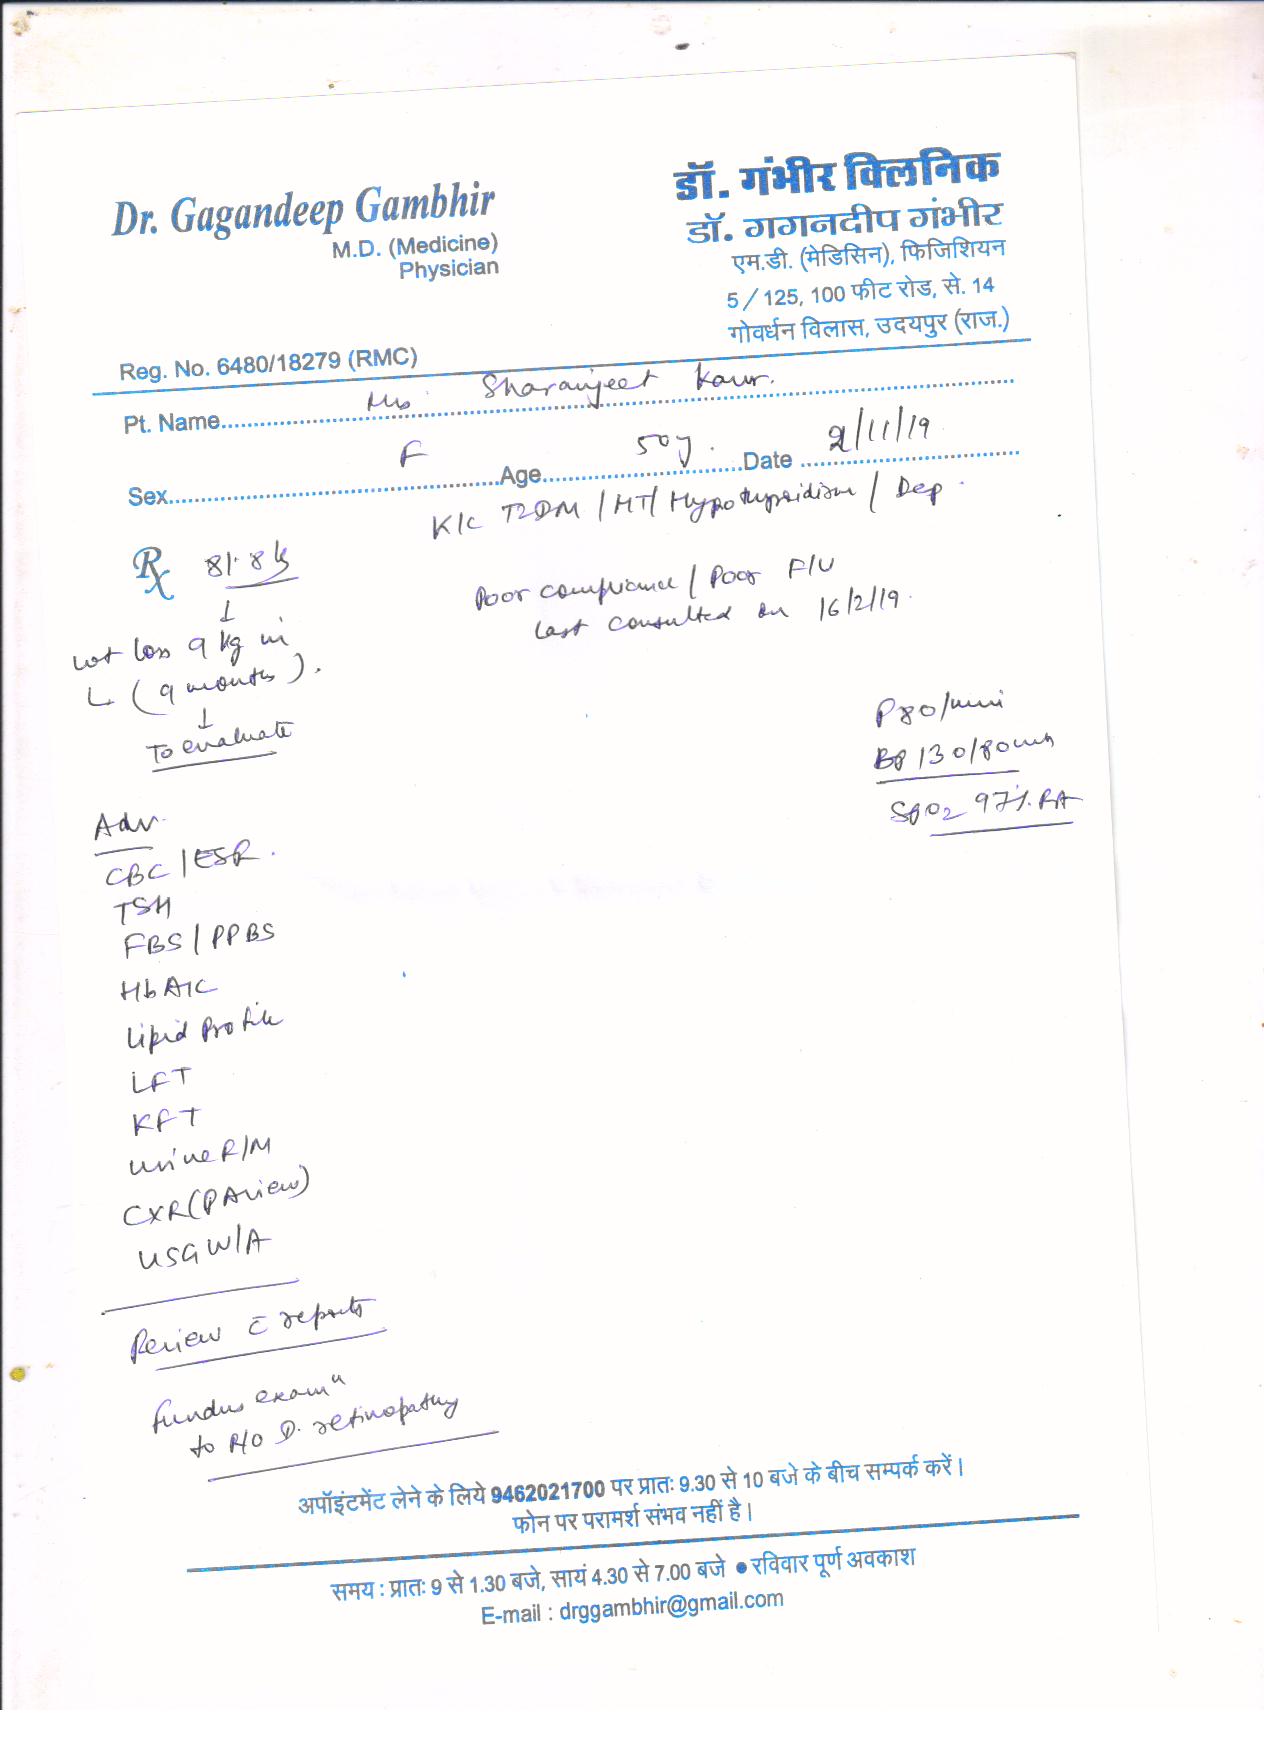 Dr. Gagandeep Gambhir
M.D. (Medicine)
Physician
Reg. No. 6480/18279 (RMC)
डॉ. गंभीर क्लिनिक
डॉ. गगनदीप गंभीर
एम.डी. (मेडिसिन), फिजिशियन
5 / 125, 100 फीट रोड, से. 14
गोवर्धन विलास, उदयपुर (राज.)
Pt. Name Mrs Sharanjeet Kaur.
Sex F Age 50y. Date 2/11/19
K/c T2DM / HT / Hypothyroidism / Dep.
Rx 81.8 kg
Poor compliance / Poor F/U
last consulted on 16/2/19.
↓
wt loss 9 kg in
↳ (9 months).
↓
To evaluate
P 80/min
BP 130/80
SpO2 97% RA
Adv.
CBC / ESR.
TSH
FBS / PPBS
HbA1C
Lipid Profile
LFT
KFT
Urine R/M
CXR (PA view)
USG W/A
Review c̄ reports
Fundus examn
to R/O D. retinopathy
अपॉइंटमेंट लेने के लिये 9462021700 पर प्रातः 9.30 से 10 बजे के बीच सम्पर्क करें।
फोन पर परामर्श संभव नहीं है।
समय : प्रातः 9 से 1.30 बजे, सायं 4.30 से 7.00 बजे ● रविवार पूर्ण अवकाश
E-mail : drggambhir@gmail.com